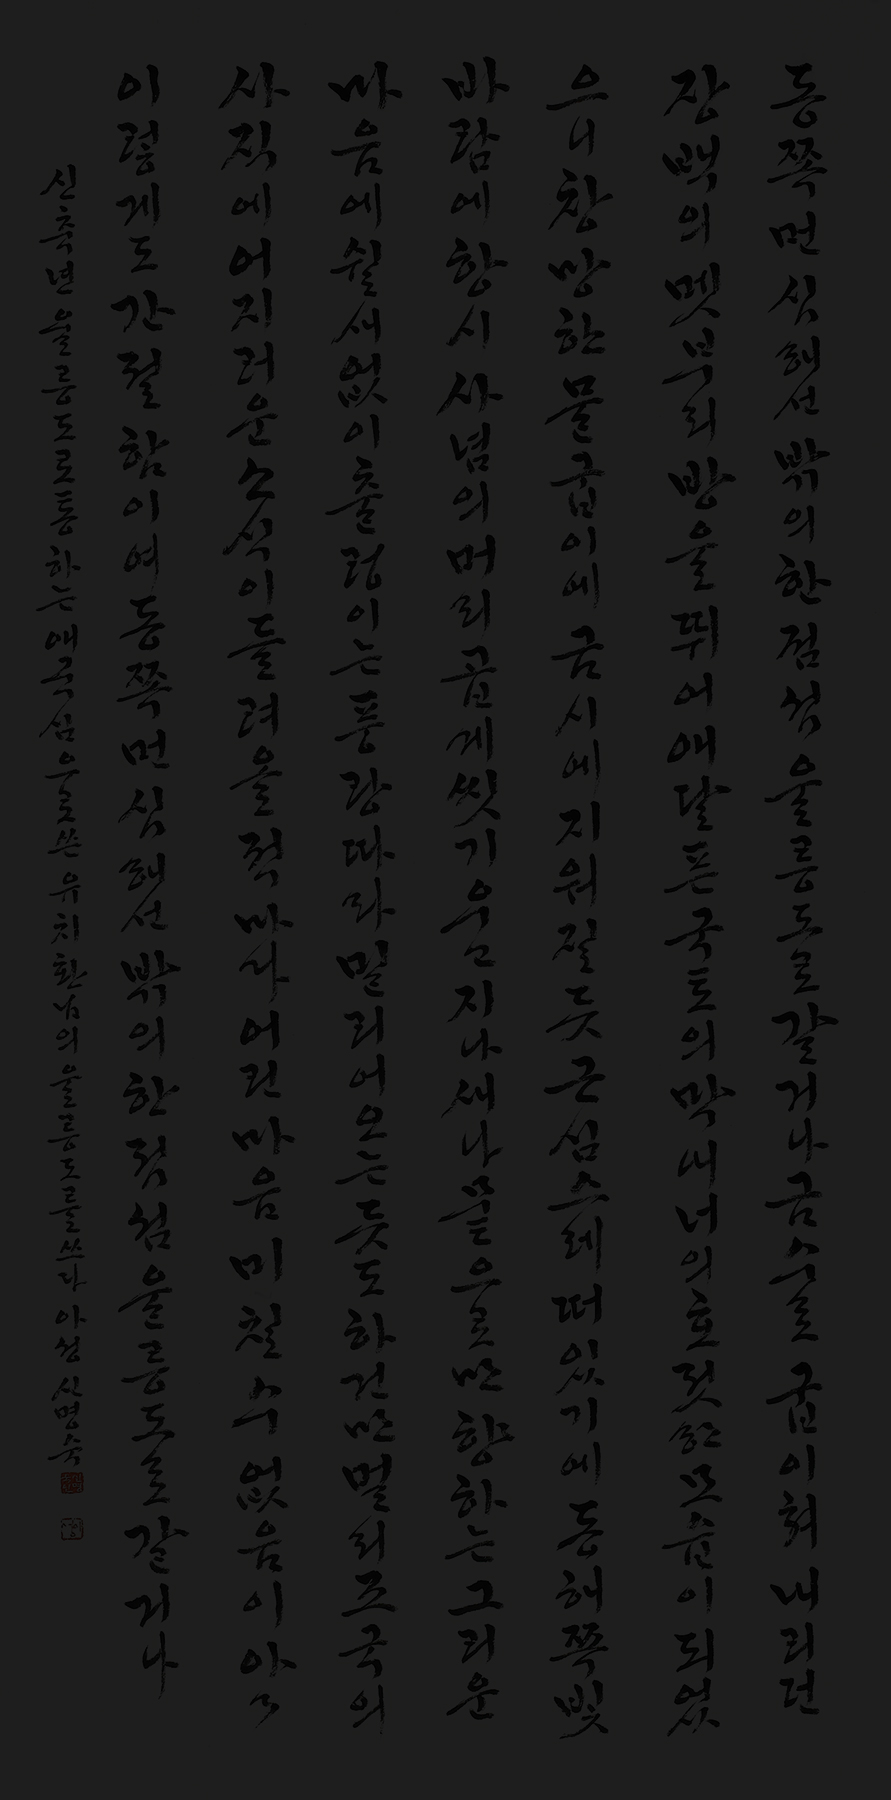 동쪽먼심해선밖의한점섬울릉도로갈거나금수로굽이쳐내리던
장백의멧부리방울뛰어애달픈국토의막내너의호젓한모습이되었
으니창망한물굽이에금시에지워질듯근심스레떠있기에동해쪽빛
바람에항시사념의머리곱게씻기우고지나새나뭍으로만향하는그리운
마음에쉴새없이출렁이는풍랑따라밀리어오는듯도하건만멀리조국의
사직에어지러운소식이들려올적마다어린마음미칠수없음이아
이렇게도간절함이여동쪽먼심해선밖의한점섬울릉도로갈거나
신축년울릉도로통하는애국심으로쓴유치환님의울릉도를쓰다아성신명숙